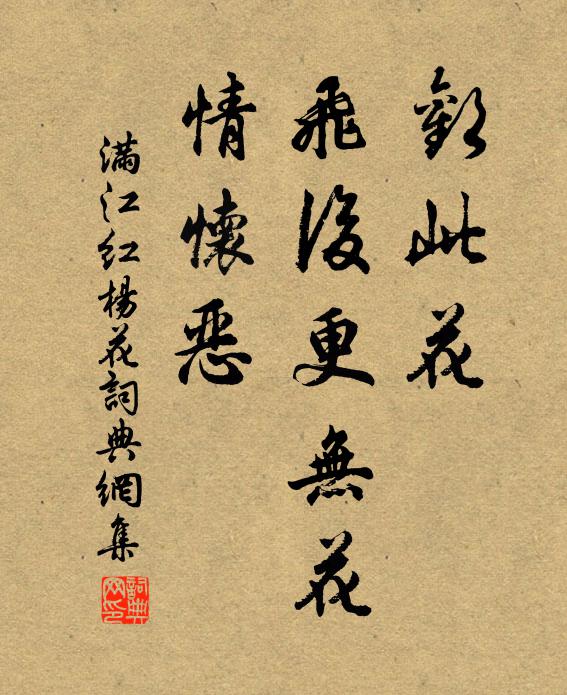 歎此花
飛後更無花
情懷惡
滿江紅楊花詞典網集
詞典
网印